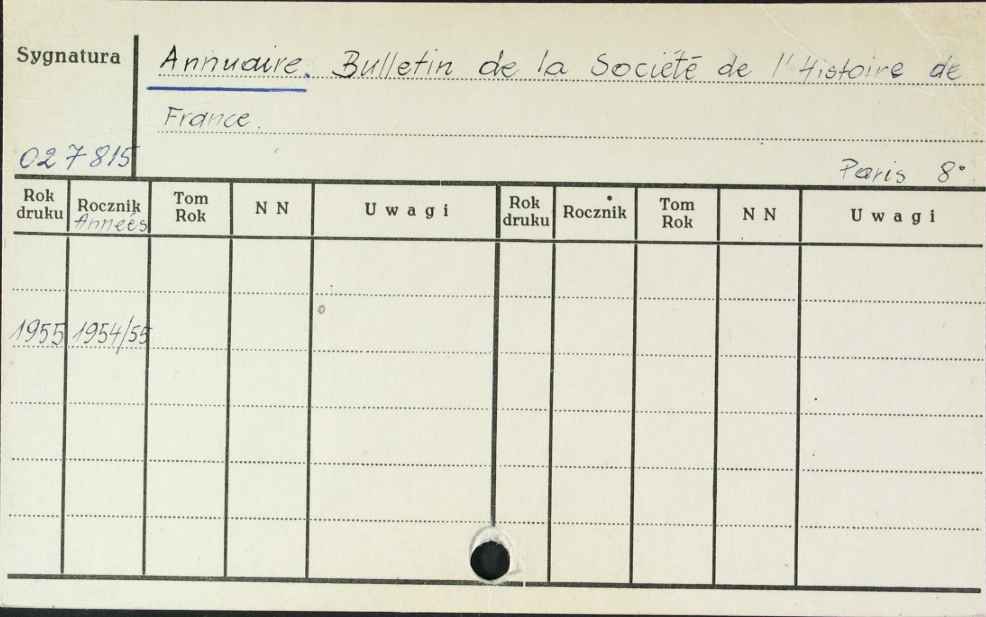 Sygnatura
Annuaire. Bulletin de la Société de l'Histoire de
France.
027815
Paris 8°
Rok druku Rocznik Années Tom Rok N N Uwagi Rok druku Rocznik Tom Rok N N Uwagi
1955 1954/55